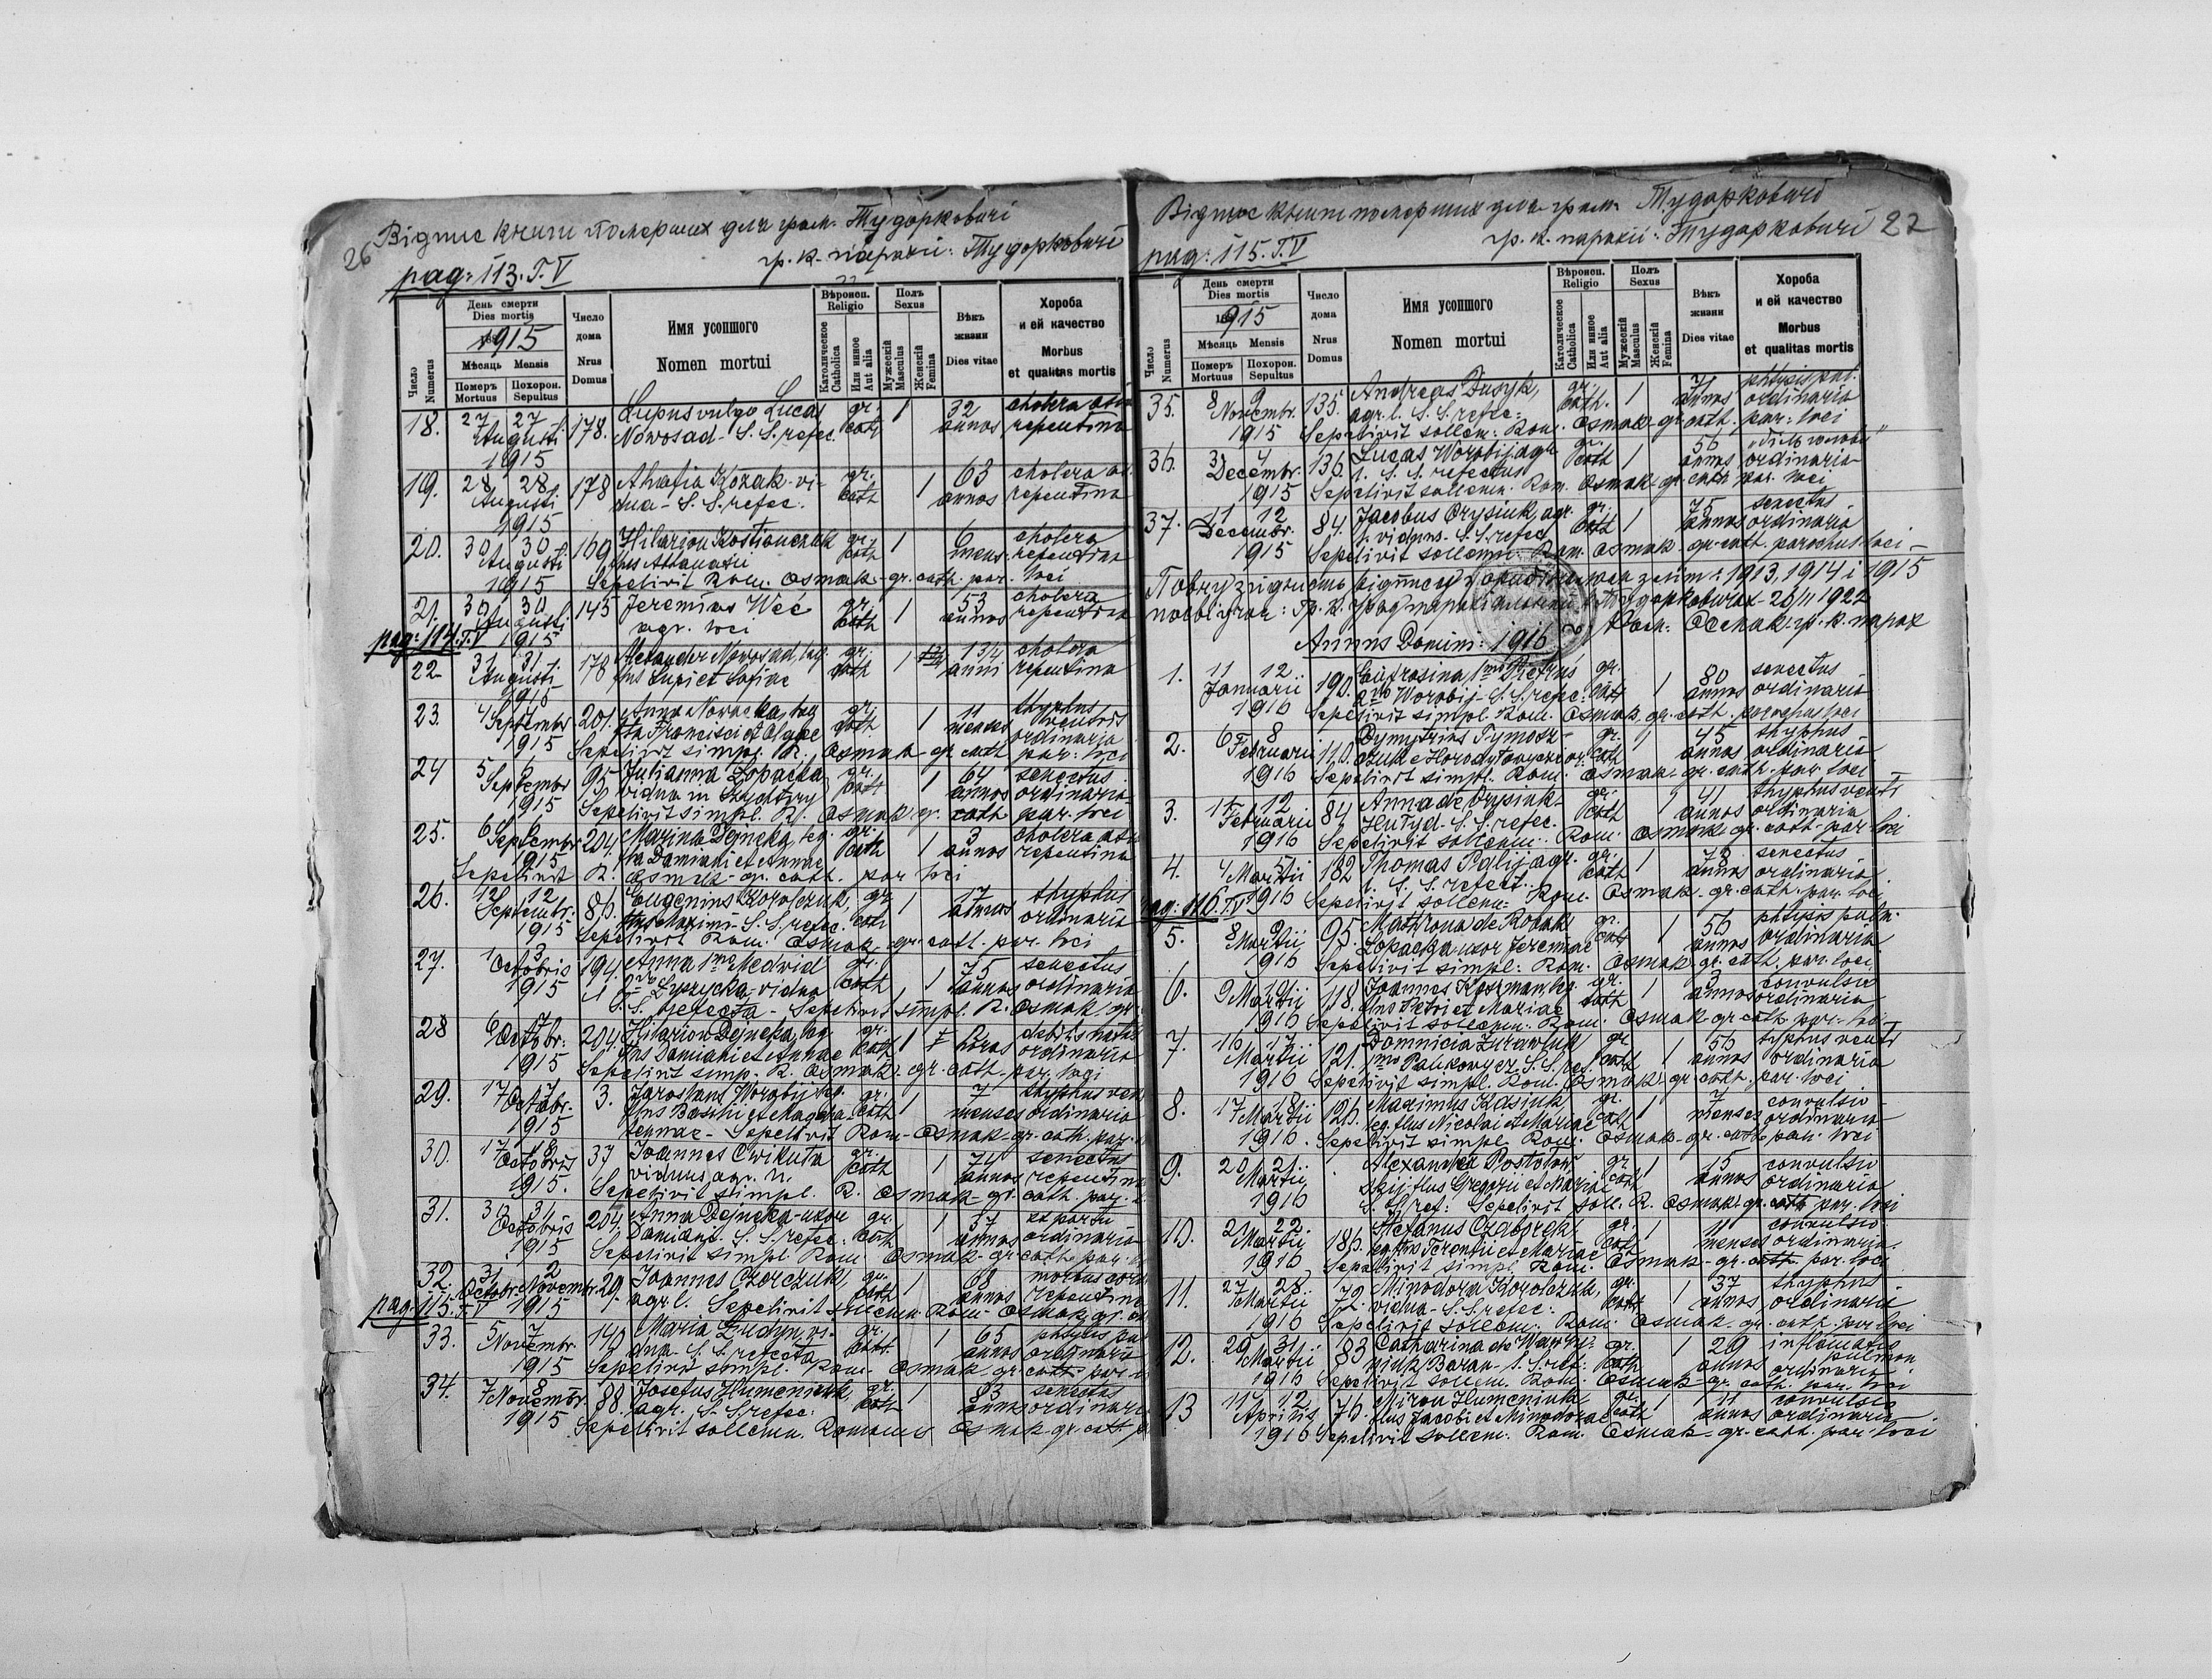 26
Відпис книги померших для гром. Тудорковичі
гр. к. парохії: Тудорковичі
pag: 113. T. V
Число Numerus
День смерти Dies mortis
1915
Мѣсяць Mensis
Померъ Mortuus
Похорон. Sepultus
Число дома Nrus Domus
Имя усопшого Nomen mortui
Вѣроисп. Religio
Католическое Catholica
Или инное Aut alia
Полъ Sexus
Мужескій Masculus
Женскій Femina
Вѣкъ жизни Dies vitae
Хороба и ей качество Morbus et qualitas mortis
18. 27 27 178. Lupus vulgo Lucas gr. 1 32 cholera
Augusti Nowosad - S. S. refec. cath annos repentina
1915
19. 28 28 178 Ahafia Kozak - vi- gr. 1 63 cholera
Augusti dua - S. S. refec. cath annos repentina
1915
20. 30 30 169 Hilarion Kostianczuk gr. 1 6 cholera
Augusti flus Athanasii cath mens. repentina
1915 Sepelivit Rom. Osmak - gr. cath. par. loci
21. 30 30 145 Jeremias Weć gr. 1 53 cholera
Augusti agr. loci cath annos repentina
pag: 114. T. V 1915
22 31 31 178 Alexander Nowosad, leg. gr. 1 1 3/4 cholera
Augusti flus Lupi et Sofiae cath anni repentina
1915
23. 4 201. Anna Nowacka, leg. gr. 1 11 thyphus
Septembr fta Francisci et Olgae cath. menses ventris
1915 ordinaria
Sepelivit simpl. R. Osmak gr. cath par. loci
24 5 6 95 Julianna Łopacka gr. 1 64 senectus
Septembr vidua cath annos ordinaria
1915 Sepelivit simpl. R. Osmak gr. cath par. loci
25. 6 204. Marina Dejneka, leg. gr. 1 3 cholera
Septembr fta Damiani et Annae cath annos repentina
1915
Sepelivit R. Osmak - gr. cath. par loci
26. 12 12 86. Eugenius Korolczuk, gr. 1 17 thyphus
Septembr. flus Maximi - S. S. refec. cath annos ordinaria
1915 Sepelivit Rom. Osmak - gr. cath. par. loci
27. 1 3 194. Anna 1mo Medwid gr. 1 75 senectus
Octobris 2do Łyzycka - vidua cath annos ordinaria
1915 S. S. refecta - Sepelivit simpl. R. Osmak, gr.
28 6 7 204. Hilarion Dejneka, leg. gr. 1 horas debilis natus
Octobr. flus Damiani et Annae cath ordinaria
1915 Sepelivit simp. R. Osmak - gr. cath. par. loci
29. 17 3. Jaroslaus Worobij leg. gr. 1 7 thyphus ven
Octobr. flus Basilii et Magda- cath menses ordinaria
1915 lennae - Sepelivit Rom - Osmak - gr. cath. par.
30. 17 18 37 Joannes Cwikuta gr. 1 74 senectus
Octobris viduus, agr. cath annos repentina
1915. Sepelivit simpl. R. Osmak - gr. cath. par.
31. 30 31 204. Anna Dejneka - uxor gr. 1 37 ex partu
Octobris Damiani. S. S. refec. cath annos ordinaria
1915 Sepelivit simpl. Rom. Osmak - gr. cath. par.
32. 31 2 29. Joannes Czerczuk, gr. 1 68 morbus cord
Octobr. Novembr. agr. l. cath annos repentina
pag: 115. T. V 1915 Sepelivit sollemn. Rom. Osmak, gr.
33. 5 7 140 Maria vi- gr. 1 65 phtysis pul
Novembr. dua - S. S. refecta cath annos ordinaria
1915 Sepelivit simpl. Rom. Osmak - gr. cath par
34. 7 8 88. Josefus Humeniuk, gr. 1 83 senectus
Novembr. agr. S. S. refec. cath annos ordinaria
1915 Sepelivit sollemn. Romanus Osmak gr. cath
Відпис книги померших для гром. Тудорковичі
гр. к. парохії: Тудорковичі 27
pag: 115. T. V
Число Numerus
День смерти Dies mortis
1915
Мѣсяць Mensis
Померъ Mortuus
Похорон. Sepultus
Число дома Nrus Domus
Имя усопшого Nomen mortui
Вѣроисп. Religio
Католическое Catholica
Или инное Aut alia
Полъ Sexus
Мужескій Masculus
Женскій Femina
Вѣкъ жизни Dies vitae
Хороба и ей качество Morbus et qualitas mortis
35. 8 9 135. Andreas Dusyk, gr. 1 71 phtysis pul.
Novembr. agr. l. S. S. refec. cath. annos ordinaria
1915 Sepelivit sollem. Rom. Osmak - gr. cath. par. loci
36. 3 4 136. Lucas Worobij agr. gr. 1 56
Decembr. l. S. S. refectus cath annos ordinaria
1915 Sepelivit sollemn. Rom. Osmak - gr. cath par. loci
37. 11 12 84. Jacobus Orysiuk, agr. gr. 1 75 senectus
Decembr. l. viduus - S. S. refec. cath annos ordinaria
1915 Sepelivit sollemn. Rom. Osmak - gr. cath. parochus loci -
1913, 1914 і 1915
Тудорковичах - 1922
Ром. Осмак гр. к. парох
Annus Domini: 1916
1. 11 12 190. Eufrosina 1mo Pietrus gr. 1 80 senectus
Januarii 2do Worobij - S. S. refec. cath annos ordinaria
1916 Sepelivit simpl. Rom. Osmak, gr. cath. parochus loci
2. 6 8 110. Dymytrius Tymosz- gr. 1 45 thyphus
Februarii czuk cath annos ordinaria
1916 Sepelivit simpl. Rom. Osmak - gr. cath. par. loci
3. 11 12 84 Anna de Orysiuk - gr. 1 41 thyphus venti
Februarii Hułyd. S. S. refec. cath annos ordinaria
1916 Sepelivit sollemn. Rom. Osmak gr. cath. par loci
4. 4 5 182 Thomas Palij agr. gr. 1 78 senectus
Martii l. S. S. refect. cath annos ordinaria
pag: 116. T. V 1916 Sepelivit sollemn. Rom. Osmak - gr. cath. par. loci
5. 8 9 95. Mathrona de Kozak gr. 1 56 phtysis pulm.
Martii Łopacka uxor Jeremiae cath annos ordinaria
1916 Sepelivit simpl. Rom. Osmak - gr. cath. par. loci
6. 9 10 118. Joannes Koszman, leg. gr. 1 3 convulsio
Martii flus Petri et Mariae cath annos ordinaria
1916 Sepelivit sollemn. Rom. Osmak - gr cath. par. loci
7. 16 17 121. Domnicia Żurawluk gr. 1 56 typhus venti
Martii 1mo Pankowycz. S. S. rec. cath annos ordinaria
1916 Sepelivit simpl. Rom. Osmak - gr. cath. par. loci
8. 17 18 126. Maximus Kasiuk gr. 1 7 convulsio
Martii leg. flus Nicolai et Mariae cath menses ordinaria
1916. Sepelivit simpl. Rom. Osmak - gr. cath. par. loci
9. 20 21 Alexander Postołow- gr. 1 15 convulsio
Martii skij flus Gregorii et Maria cath annos ordinaria
1916 S. S. ref: Sepelivit soll. R. Osmak, gr. cath par. loci
10. 21 22. 186. Stefanus gr. 1 11 convulsio
Martii leg. flus Terentii et Mariae cath menses ordinaria
1916 Sepelivit simpl. Rom. Osmak - gr. cath. par. loci
11. 27 28. 72 Minodora Korolczuk, gr. 1 37 thyphus
Martii vidua - S. S. refec: cath annos ordinaria
1916 Sepelivit sollem. Rom. Osmak - gr. cath. par. loci
12. 29 31 83 Catharina de Wawry- gr. 1 29 inflamatio
Martii niuk Baran - S. S. ref: cath annos pulmon
ordinaria
1916 Sepelivit sollem. Rom. Osmak - gr. cath. par. loci
13 11 12 76. Miron Humeniuk gr. 1 11 convulsio
Aprilis flus Jacobi et Minodorae cath annos ordinaria
1916 Sepelivit sollemn. Rom. Osmak - gr. cath. par. loci